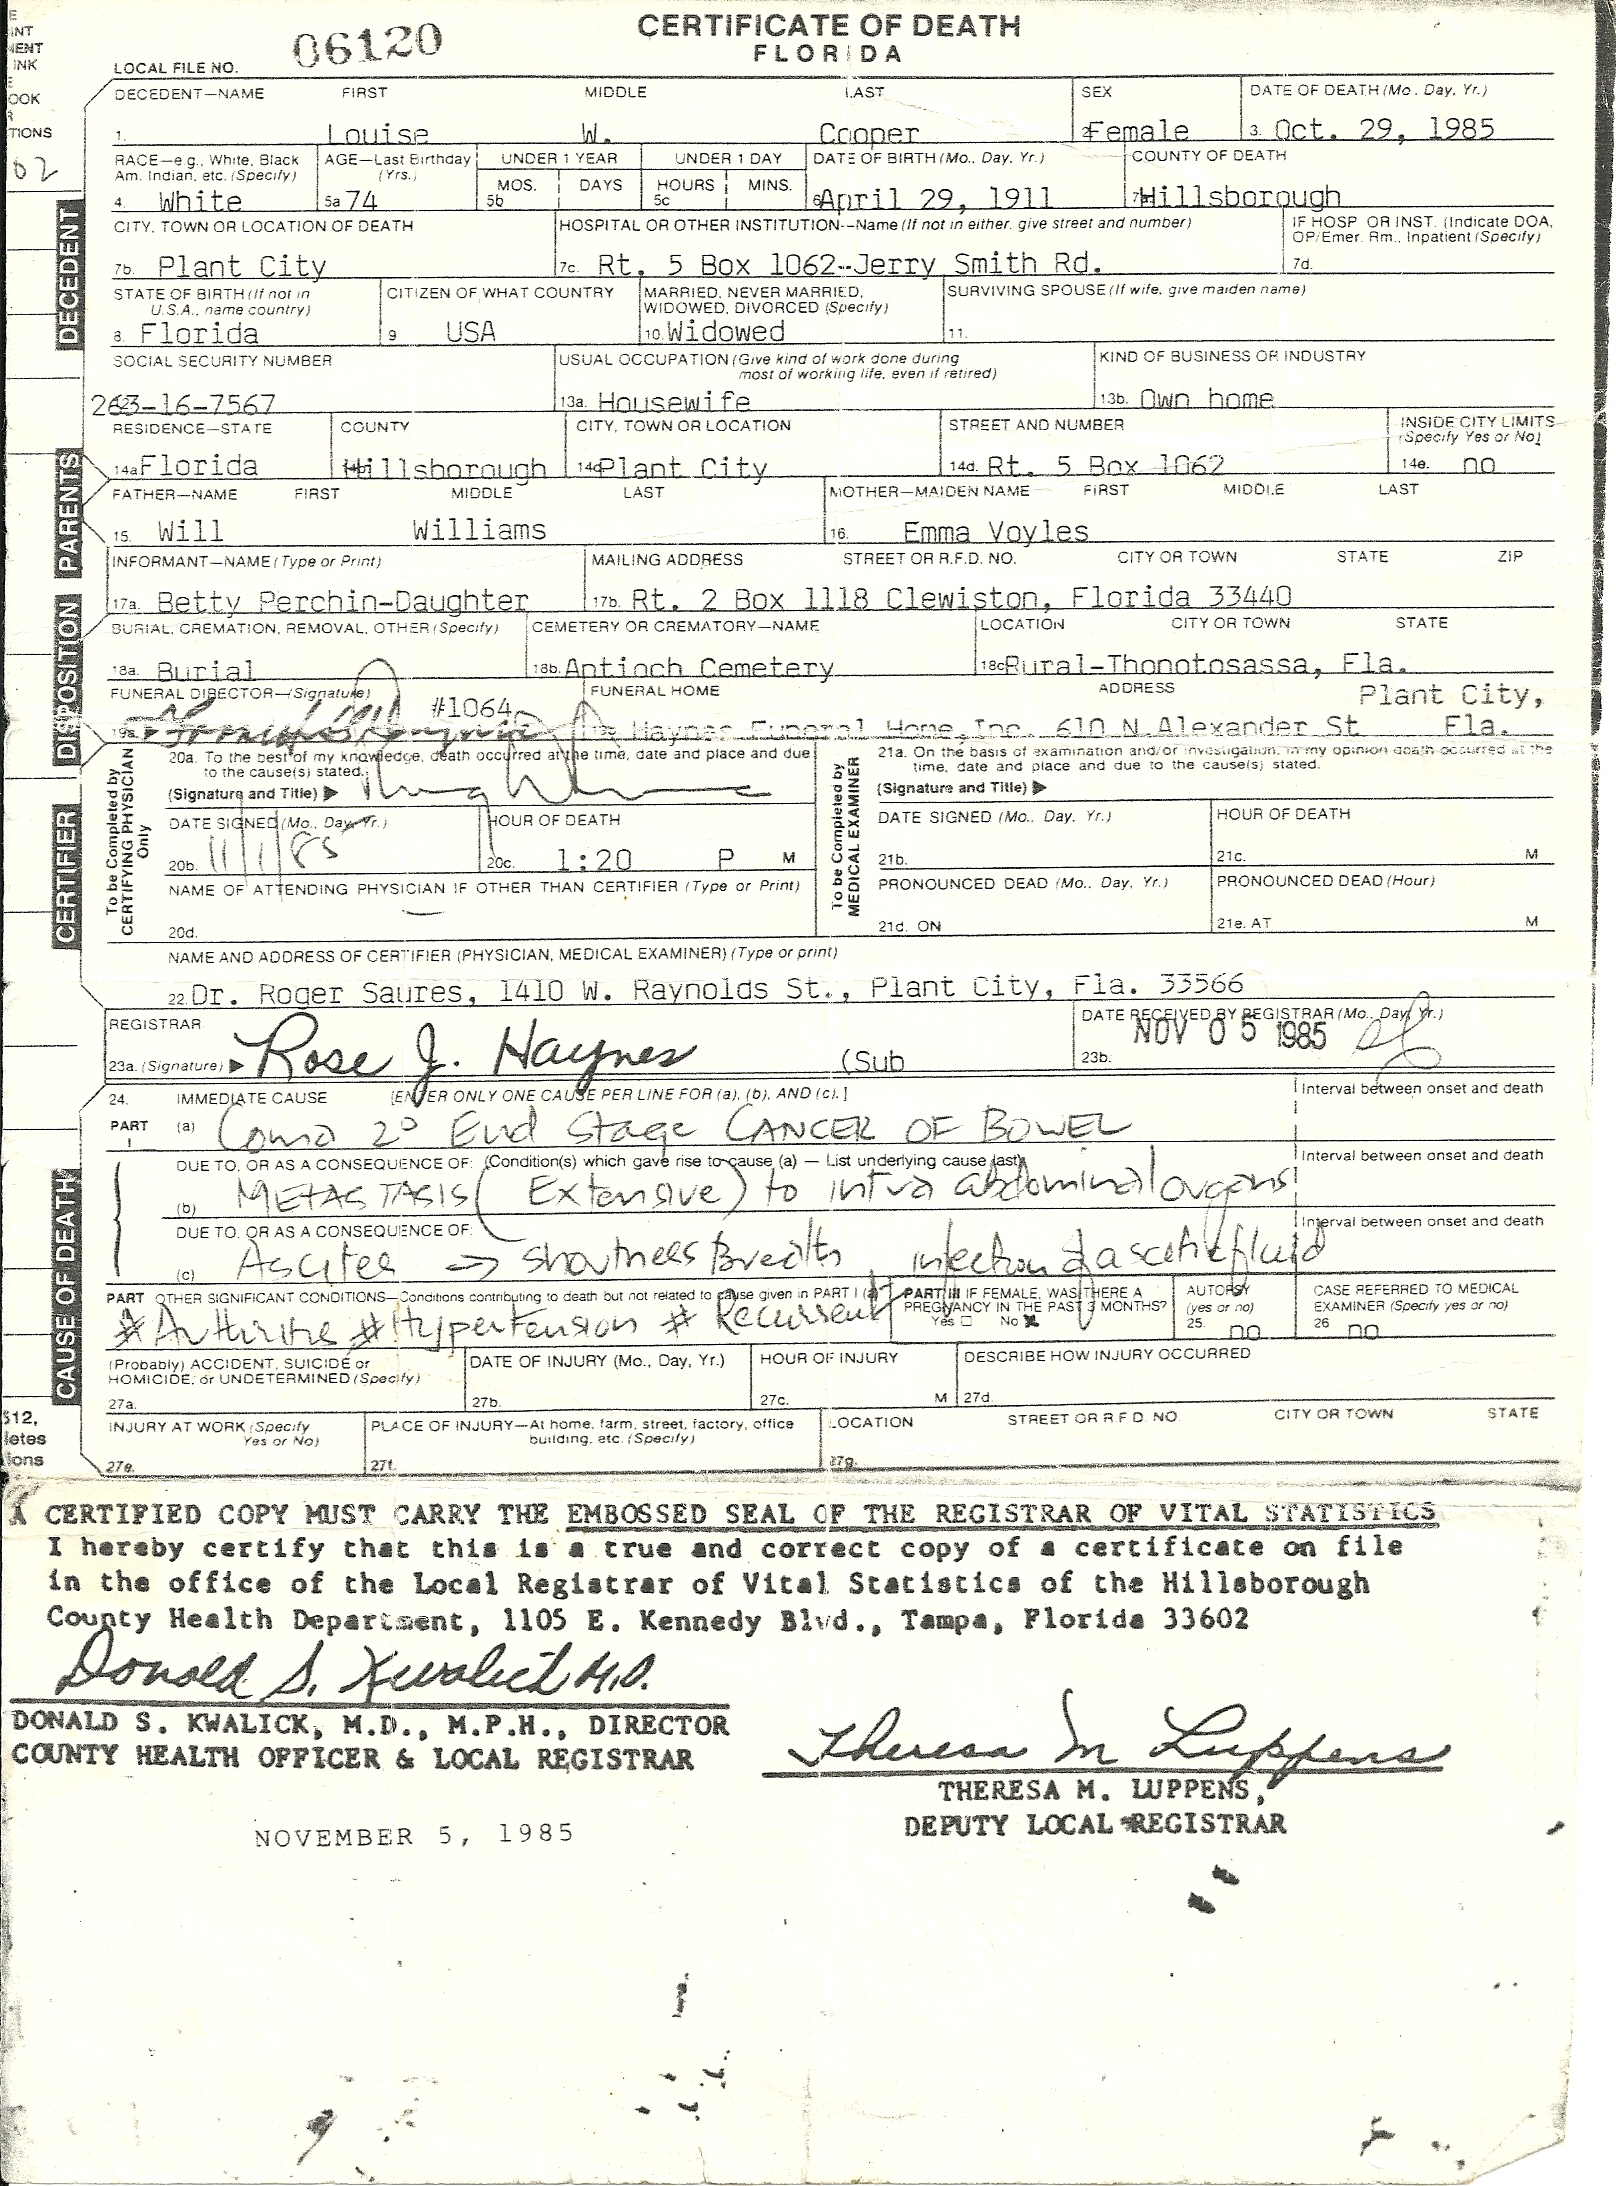 CERTIFICATE OF DEATH
FLORIDA
LOCAL FILE NO. 06120
DECEDENT—NAME FIRST MIDDLE LAST SEX DATE OF DEATH (Mo., Day, Yr.)
1. Louise W. Cooper 2. Female 3. Oct. 29, 1985
RACE—e.g., White, Black AGE—Last Birthday UNDER 1 YEAR UNDER 1 DAY DATE OF BIRTH (Mo., Day, Yr.) COUNTY OF DEATH
Am. Indian, etc. (Specify) (Yrs.) MOS. DAYS HOURS MINS.
4. White 5a 74 5b 5c 6. April 29, 1911 7a Hillsborough
CITY, TOWN OR LOCATION OF DEATH HOSPITAL OR OTHER INSTITUTION--Name (If not in either, give street and number) IF HOSP. OR INST. (Indicate DOA,
OP/Emer. Rm., Inpatient (Specify)
7b. Plant City 7c. Rt. 5 Box 1062--Jerry Smith Rd. 7d.
STATE OF BIRTH (If not in CITIZEN OF WHAT COUNTRY MARRIED, NEVER MARRIED, SURVIVING SPOUSE (If wife, give maiden name)
U.S.A., name country) WIDOWED, DIVORCED (Specify)
8. Florida 9 USA 10. Widowed 11.
SOCIAL SECURITY NUMBER USUAL OCCUPATION (Give kind of work done during KIND OF BUSINESS OR INDUSTRY
most of working life, even if retired)
263-16-7567 13a. Housewife 13b. Own home
RESIDENCE—STATE COUNTY CITY, TOWN OR LOCATION STREET AND NUMBER INSIDE CITY LIMITS
(Specify Yes or No)
14a Florida 14b Hillsborough 14c Plant City 14d. Rt. 5 Box 1062 14e. no
FATHER—NAME FIRST MIDDLE LAST MOTHER—MAIDEN NAME FIRST MIDDLE LAST
15. Will Williams 16. Emma Voyles
INFORMANT—NAME (Type or Print) MAILING ADDRESS STREET OR R.F.D. NO. CITY OR TOWN STATE ZIP
17a. Betty Perchin-Daughter 17b. Rt. 2 Box 1118 Clewiston, Florida 33440
BURIAL, CREMATION, REMOVAL, OTHER (Specify) CEMETERY OR CREMATORY—NAME LOCATION CITY OR TOWN STATE
18a. Burial 18b. Antioch Cemetery 18c Rural-Thonotosassa, Fla.
FUNERAL DIRECTOR—(Signature) FUNERAL HOME ADDRESS Plant City,
19a. #1064 Haynes Funeral Home, Inc. 610 N. Alexander St Fla.
20a. To the best of my knowledge, death occurred at the time, date and place and due
to the cause(s) stated.
(Signature and Title)
21a. On the basis of examination and/or investigation, in my opinion death occurred at the
time, date and place and due to the cause(s) stated.
(Signature and Title)
DATE SIGNED (Mo., Day, Yr.) HOUR OF DEATH DATE SIGNED (Mo., Day, Yr.) HOUR OF DEATH
20b. 11/1/85 20c. 1:20 P M 21b. 21c. M
NAME OF ATTENDING PHYSICIAN IF OTHER THAN CERTIFIER (Type or Print) PRONOUNCED DEAD (Mo., Day, Yr.) PRONOUNCED DEAD (Hour)
20d. 21d. ON 21e. AT M
NAME AND ADDRESS OF CERTIFIER (PHYSICIAN, MEDICAL EXAMINER) (Type or print)
22. Dr. Roger Saures, 1410 W. Raynolds St., Plant City, Fla. 33566
REGISTRAR DATE RECEIVED BY REGISTRAR (Mo., Day, Yr.)
23a. (Signature) Rose J. Haynes (Sub 23b. NOV 05 1985
24. IMMEDIATE CAUSE [ENTER ONLY ONE CAUSE PER LINE FOR (a), (b), AND (c).] Interval between onset and death
PART I (a) Coma 2° End Stage CANCER OF BOWEL
DUE TO, OR AS A CONSEQUENCE OF: (Condition(s) which gave rise to cause (a) — List underlying cause last) Interval between onset and death
(b) METASTASIS (Extensive) to intra abdominal organs
DUE TO, OR AS A CONSEQUENCE OF: Interval between onset and death
(c) Ascites → shortness Breath, infection of ascitic fluid
PART OTHER SIGNIFICANT CONDITIONS—Conditions contributing to death but not related to cause given in PART I (a) PART III IF FEMALE, WAS THERE A AUTOPSY CASE REFERRED TO MEDICAL
PREGNANCY IN THE PAST 3 MONTHS? (yes or no) EXAMINER (Specify yes or no)
# Arthritis # Hypertension # Recurrent Yes No 25. no 26 no
(Probably) ACCIDENT, SUICIDE or DATE OF INJURY (Mo., Day, Yr.) HOUR OF INJURY DESCRIBE HOW INJURY OCCURRED
HOMICIDE, or UNDETERMINED (Specify)
27a. 27b. 27c. M 27d.
INJURY AT WORK (Specify PLACE OF INJURY—At home, farm, street, factory, office LOCATION STREET OR R.F.D. NO. CITY OR TOWN STATE
Yes or No) building, etc. (Specify)
27e. 27f. 27g.
DECEDENT
PARENTS
DISPOSITION
CERTIFIER
CAUSE OF DEATH
To be Completed by
CERTIFYING PHYSICIAN
Only
To be Completed by
MEDICAL EXAMINER
A CERTIFIED COPY MUST CARRY THE EMBOSSED SEAL OF THE REGISTRAR OF VITAL STATISTICS
I hereby certify that this is a true and correct copy of a certificate on file
in the office of the Local Registrar of Vital Statistics of the Hillsborough
County Health Department, 1105 E. Kennedy Blvd., Tampa, Florida 33602
Donald S. Kwalick M.D.
DONALD S. KWALICK, M.D., M.P.H., DIRECTOR
COUNTY HEALTH OFFICER & LOCAL REGISTRAR
Theresa M Luppens
THERESA M. LUPPENS,
DEPUTY LOCAL REGISTRAR
NOVEMBER 5, 1985